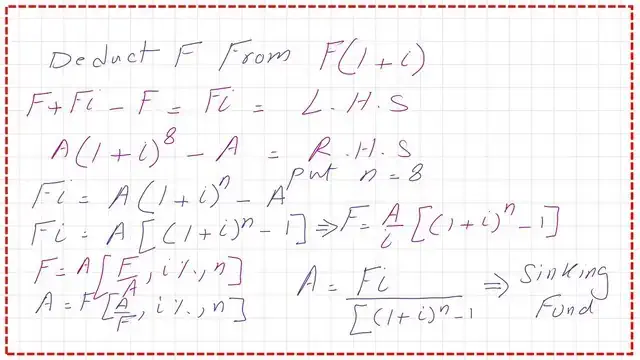 Deduct F From F(1+i)
F+Fi-F = Fi = L.H.S
A(1+i)^8 - A = R.H.S
put n=8
Fi = A(1+i)^n - A
Fi = A[(1+i)^n-1] ⇒ F = A/i [(1+i)^n-1]
F = A[F/A, i%, n]
A = F[A/F, i%, n]
A = Fi/[(1+i)^n-1 ⇒ Sinking
Fund